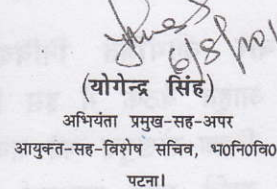 6/8/2001
(योगेन्द्र सिंह)
अभियंता प्रमुख-सह-अपर
आयुक्त-सह-विशेष सचिव, भ0नि0वि0
पटना।